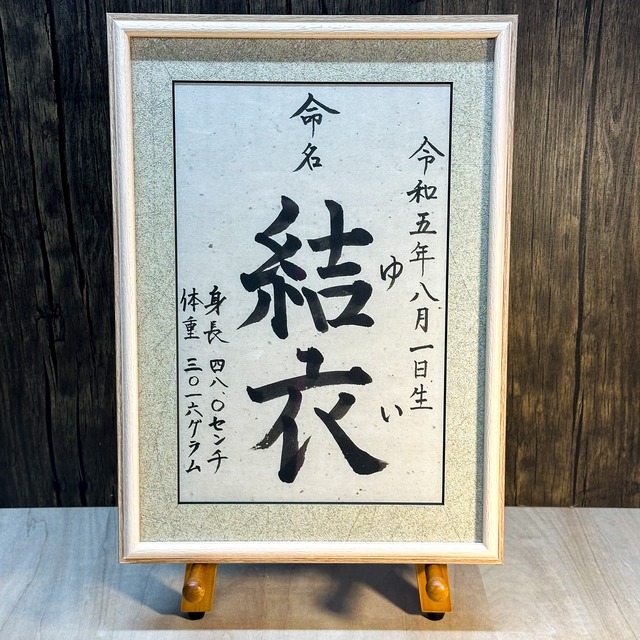 令和五年八月一日生
命名
結衣
ゆい
身長 四八.〇センチ
体重 三〇一六グラム